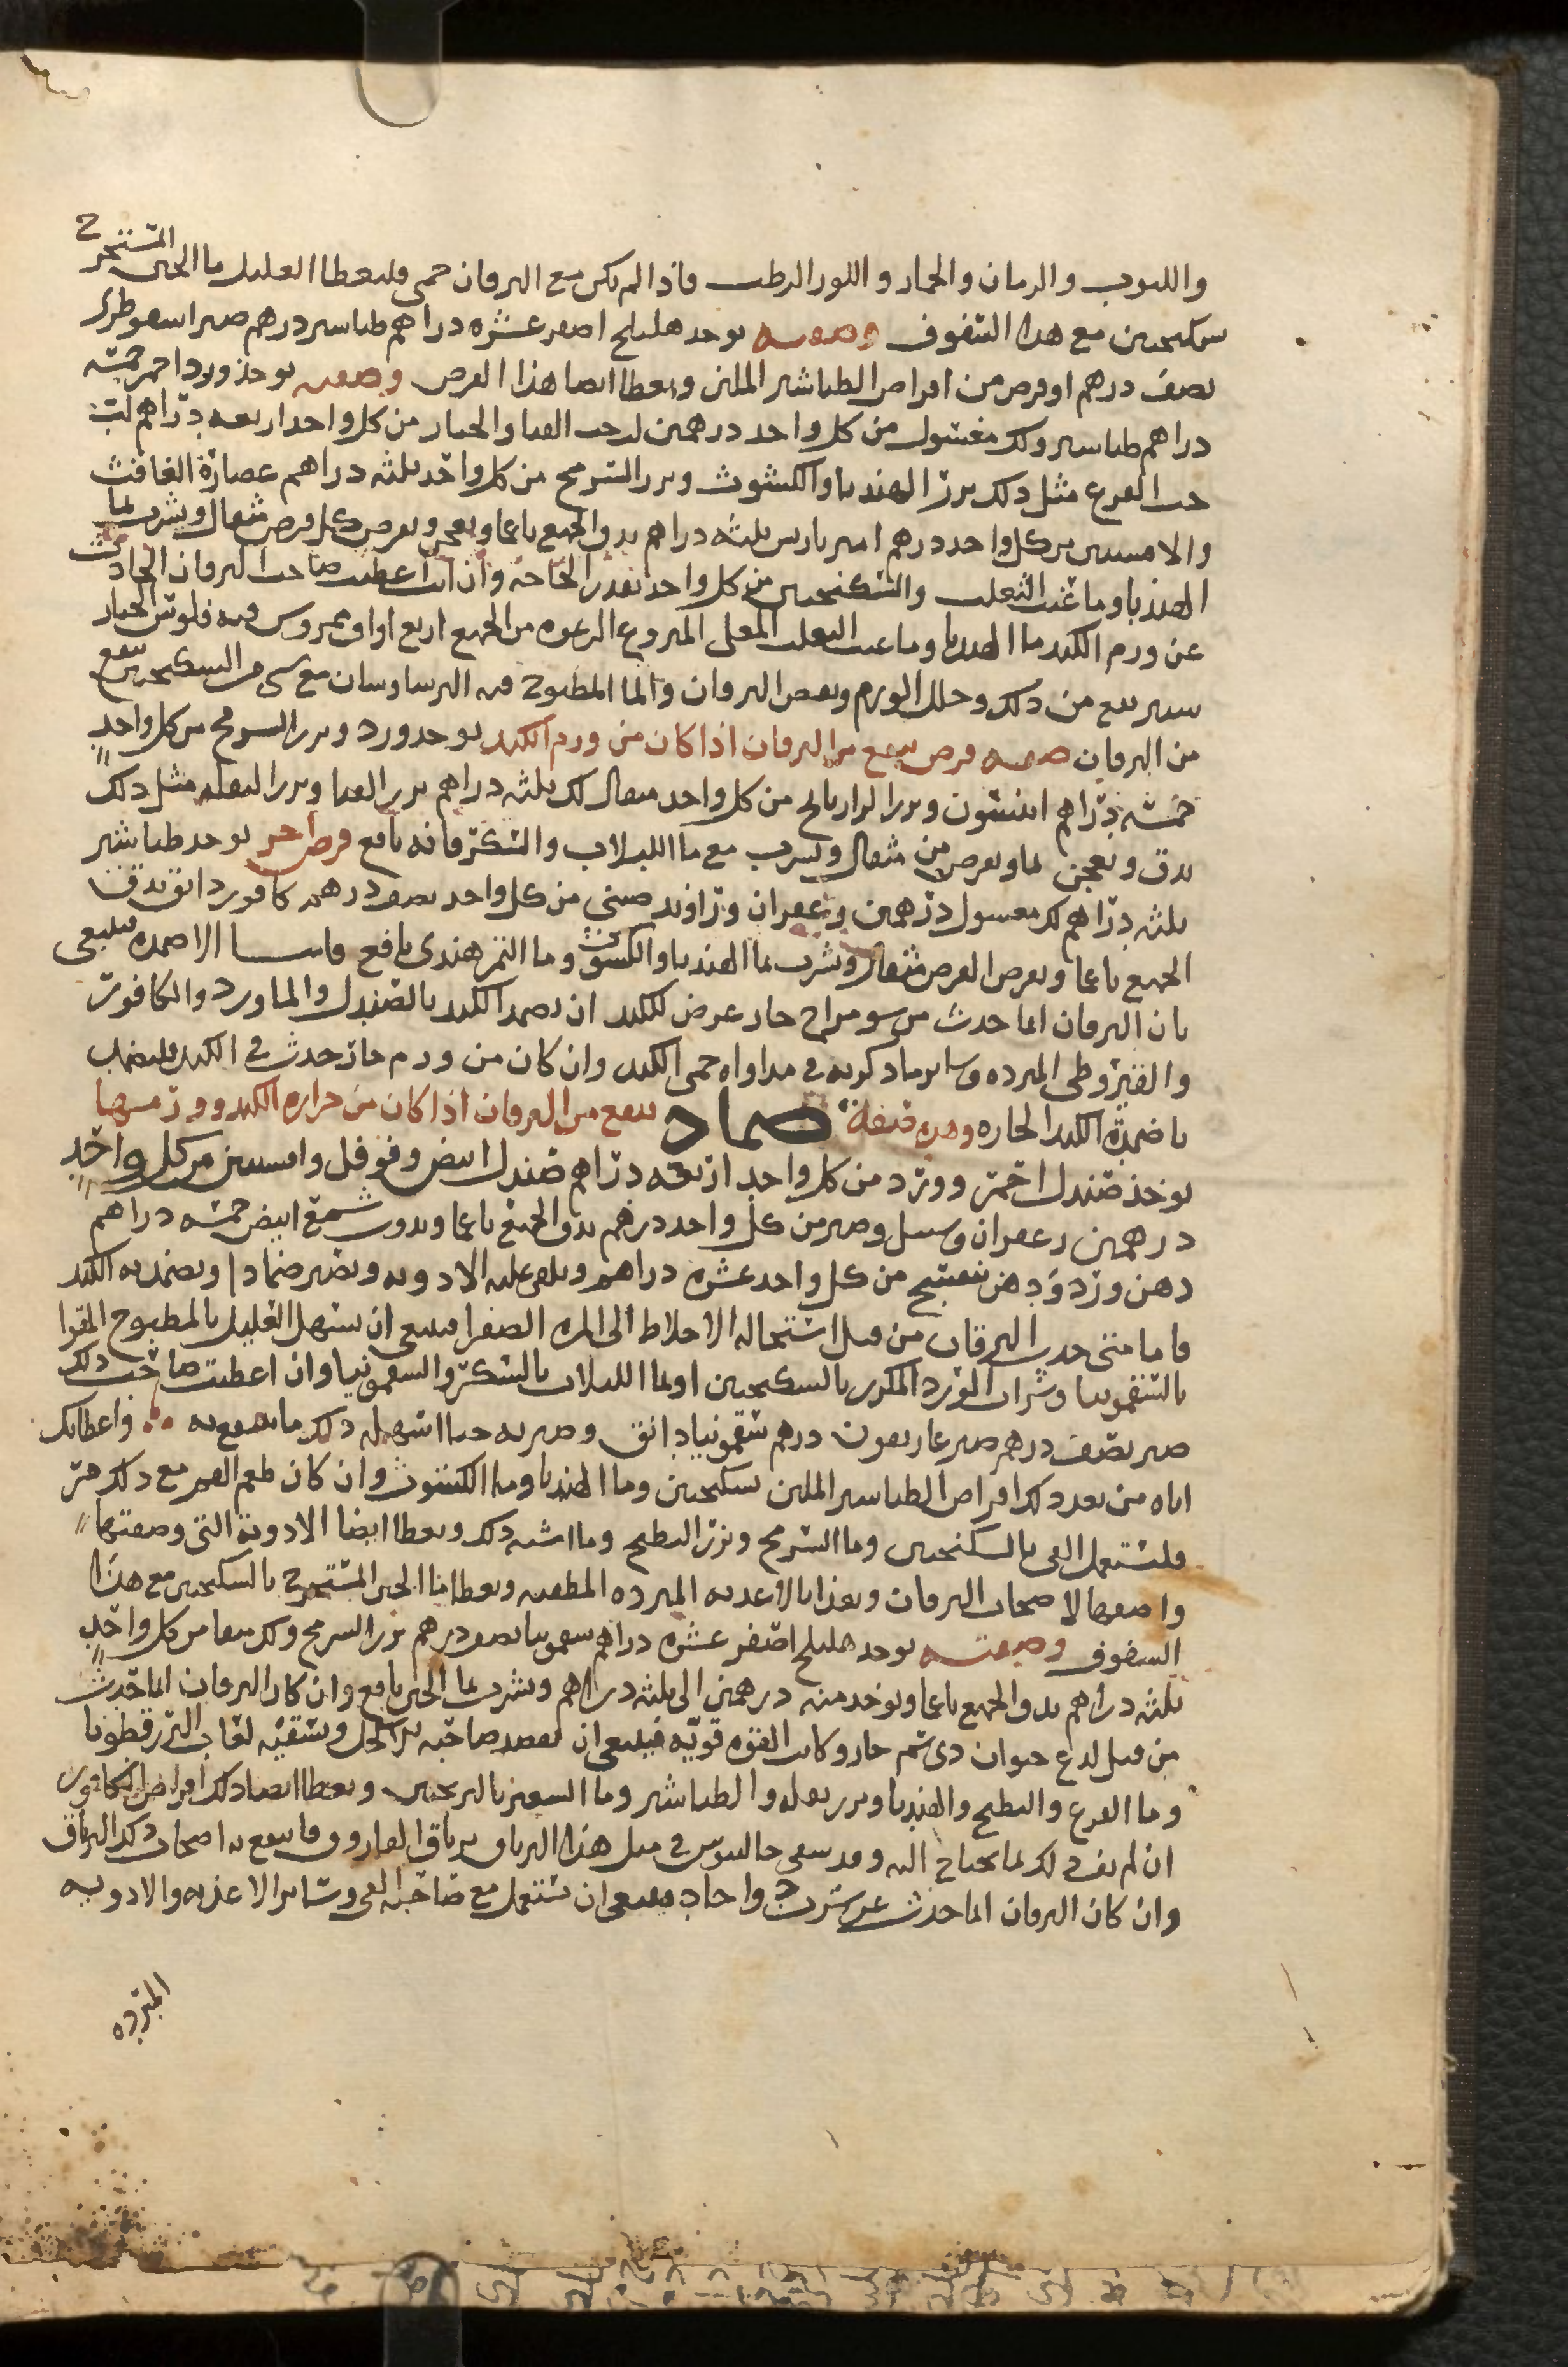 والتوت والرمان والخيار واللوز الرطب فاذا لم يكن مع اليرقان حمى فليعطا العليل ما الجبن المستخرج
سكنجبين مع هذا السفوف وصفته يوخذ هليلج اصفر عشره دراهم طباشير درهم صبر اسقوطرى
نصف درهم او قرص من اقراص الطباشير الملين ويعطا ايضا هذا القرص وصفته يوخذ ورد احمر خمسه
دراهم طباشير ولك مغسول من كل واحد درهمين لب حب القثا والخيار من كل واحد اربعه دراهم لب
حب القرع مثل ذلك بزر الهندبا والكشوث وبزر السرمج من كل واحد ثلثه دراهم عصارة الغافث
والافسنتين من كل واحد درهم امير باريس ثلثه دراهم يدق الجميع ناعما ويعجن ويقرص كل قرص مثقال ويشرب بما
الهندبا وما عنب الثعلب والسكنجبين من كل واحد بقدر الحاجه وان انت اعطيت صاحب اليرقان الحادث
عن ورم الكبد ما الهندبا وما عنب الثعلب المغلى المنزوع الرغوه من الجميع اربع اواق ممروس فيه فلوس الخيار
شنبر نفع من ذلك وحلل الورم ونقص اليرقان والما المطبوخ فيه البرسياوسان مع شى من السكنجبين ينفع
من اليرقان صفه قرص ينفع من اليرقان اذا كان من ورم الكبد يوخذ ورد وبزر السرمج من كل واحد
خمسه دراهم انيسون وبزر الرازيانج من كل واحد مثقال لك ثلثه دراهم بزر القثا وبزر البقله مثل ذلك
يدق ويعجن بما ويقرص من مثقال ويشرب مع ما اللبلاب والسكر فانه نافع قرص اخر يوخذ طباشير
ثلثه دراهم لك مغسول درهمين زعفران وراوند صينى من كل واحد نصف درهم كافور دانق يدق
الجميع ناعما ويقرص القرص مثقال ويشرب بما الهندبا والكشوث وما التمر هندى نافع فاما الاضمده فينبغى
بان اليرقان انما حدث من سو مزاج حار عرض للكبد ان يضمد الكبد بالصندل والماورد والكافور
والقيروطى المبرده وساير ما ذكرته فى مداواه حمى الكبد وان كان من ورم حار حدث فى الكبد فليضمد
باضمدة الكبد الحاره وهذه صفه ضماد ينفع من اليرقان اذا كان من حراره الكبد وورم فيها
يوخذ صندل احمر وورد من كل واحد اربعه دراهم صندل ابيض وفوفل وافسنتين من كل واحد
درهمين زعفران وسنبل وصبر من كل واحد درهم يدق الجميع ناعما ويذوب شمع ابيض خمسه دراهم
دهن ورد ودهن بنفسج من كل واحد عشره دراهم ويلقى عليه الادويه ويصير ضمادا ويضمد به الكبد
فاما متى حدث اليرقان من قبل استحاله الاخلاط الى المره الصفرا فينبغى ان يسهل العليل بالمطبوخ المقوا
بالسقمونيا وشراب الورد المكرر بالسكنجبين او بما اللبلاب بالسكر والسقمونيا وان اعطيت صاحب ذلك
صبر نصف درهم صبر غاريقون درهم سقمونيا دانق وصير به حبا اسهله ذلك ما ينتفع به واعطائك
اياه من بعد ذلك اقراص الطباشير الملين بسكنجبين وما الهندبا وما الكشوث وان كان طعم الفم مع ذلك مر
فليستعمل القى بالسكنجبين وما السرمج وبزر البطيخ وما اشبه ذلك ويعطا ايضا الادوية التى وصفتها
واصفها لاصحاب اليرقان ويغذا بالاغذيه المبرده المطفيه ويعطا ما الجبن المستخرج بالسكنجبين مع هذا
السفوف وصفته يوخذ هليلج اصفر عشره دراهم سقمونيا نصف درهم بزر السرمج ولك منقا من كل واحد
ثلثه دراهم يدق الجميع ناعما ويوخذ منه درهمين الى ثلثه دراهم ويشرب بما الجبن نافع وان كان اليرقان انما حدث
من قبل لدغ حيوان ذى سم حار وكانت القوه قويه فينبغى ان يفصد صاحبه من الاكحل ويسقيه لعاب البزرقطونا
وما القرع والبطيخ والهندبا وبزر بقله والطباشير وما الشعير بالترنجبين ويعطا ايضا ذلك اقراص الكافور
ان لم يفى لك بما يحتاج اليه وقد سقى جالينوس فى مثل هذا اليرقان ترياق الفاروق فانتفع به اصحاب ذلك اليرقان
وان كان اليرقان انما حدث عن شرب دوا حاد فينبغى ان تستعمل مع صاحبه القى وساير الاغذيه والادويه
المبرده